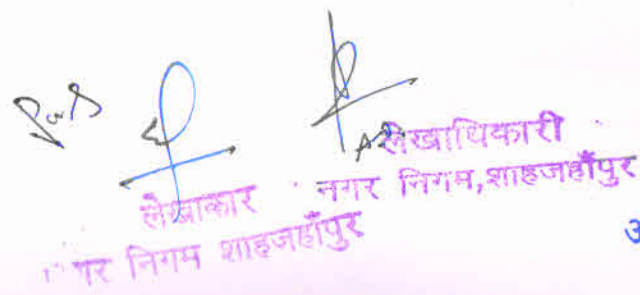 लेखाकार
निगम शाहजहाँपुर
लेखाधिकारी
नगर निगम,शाहजहाँपुर